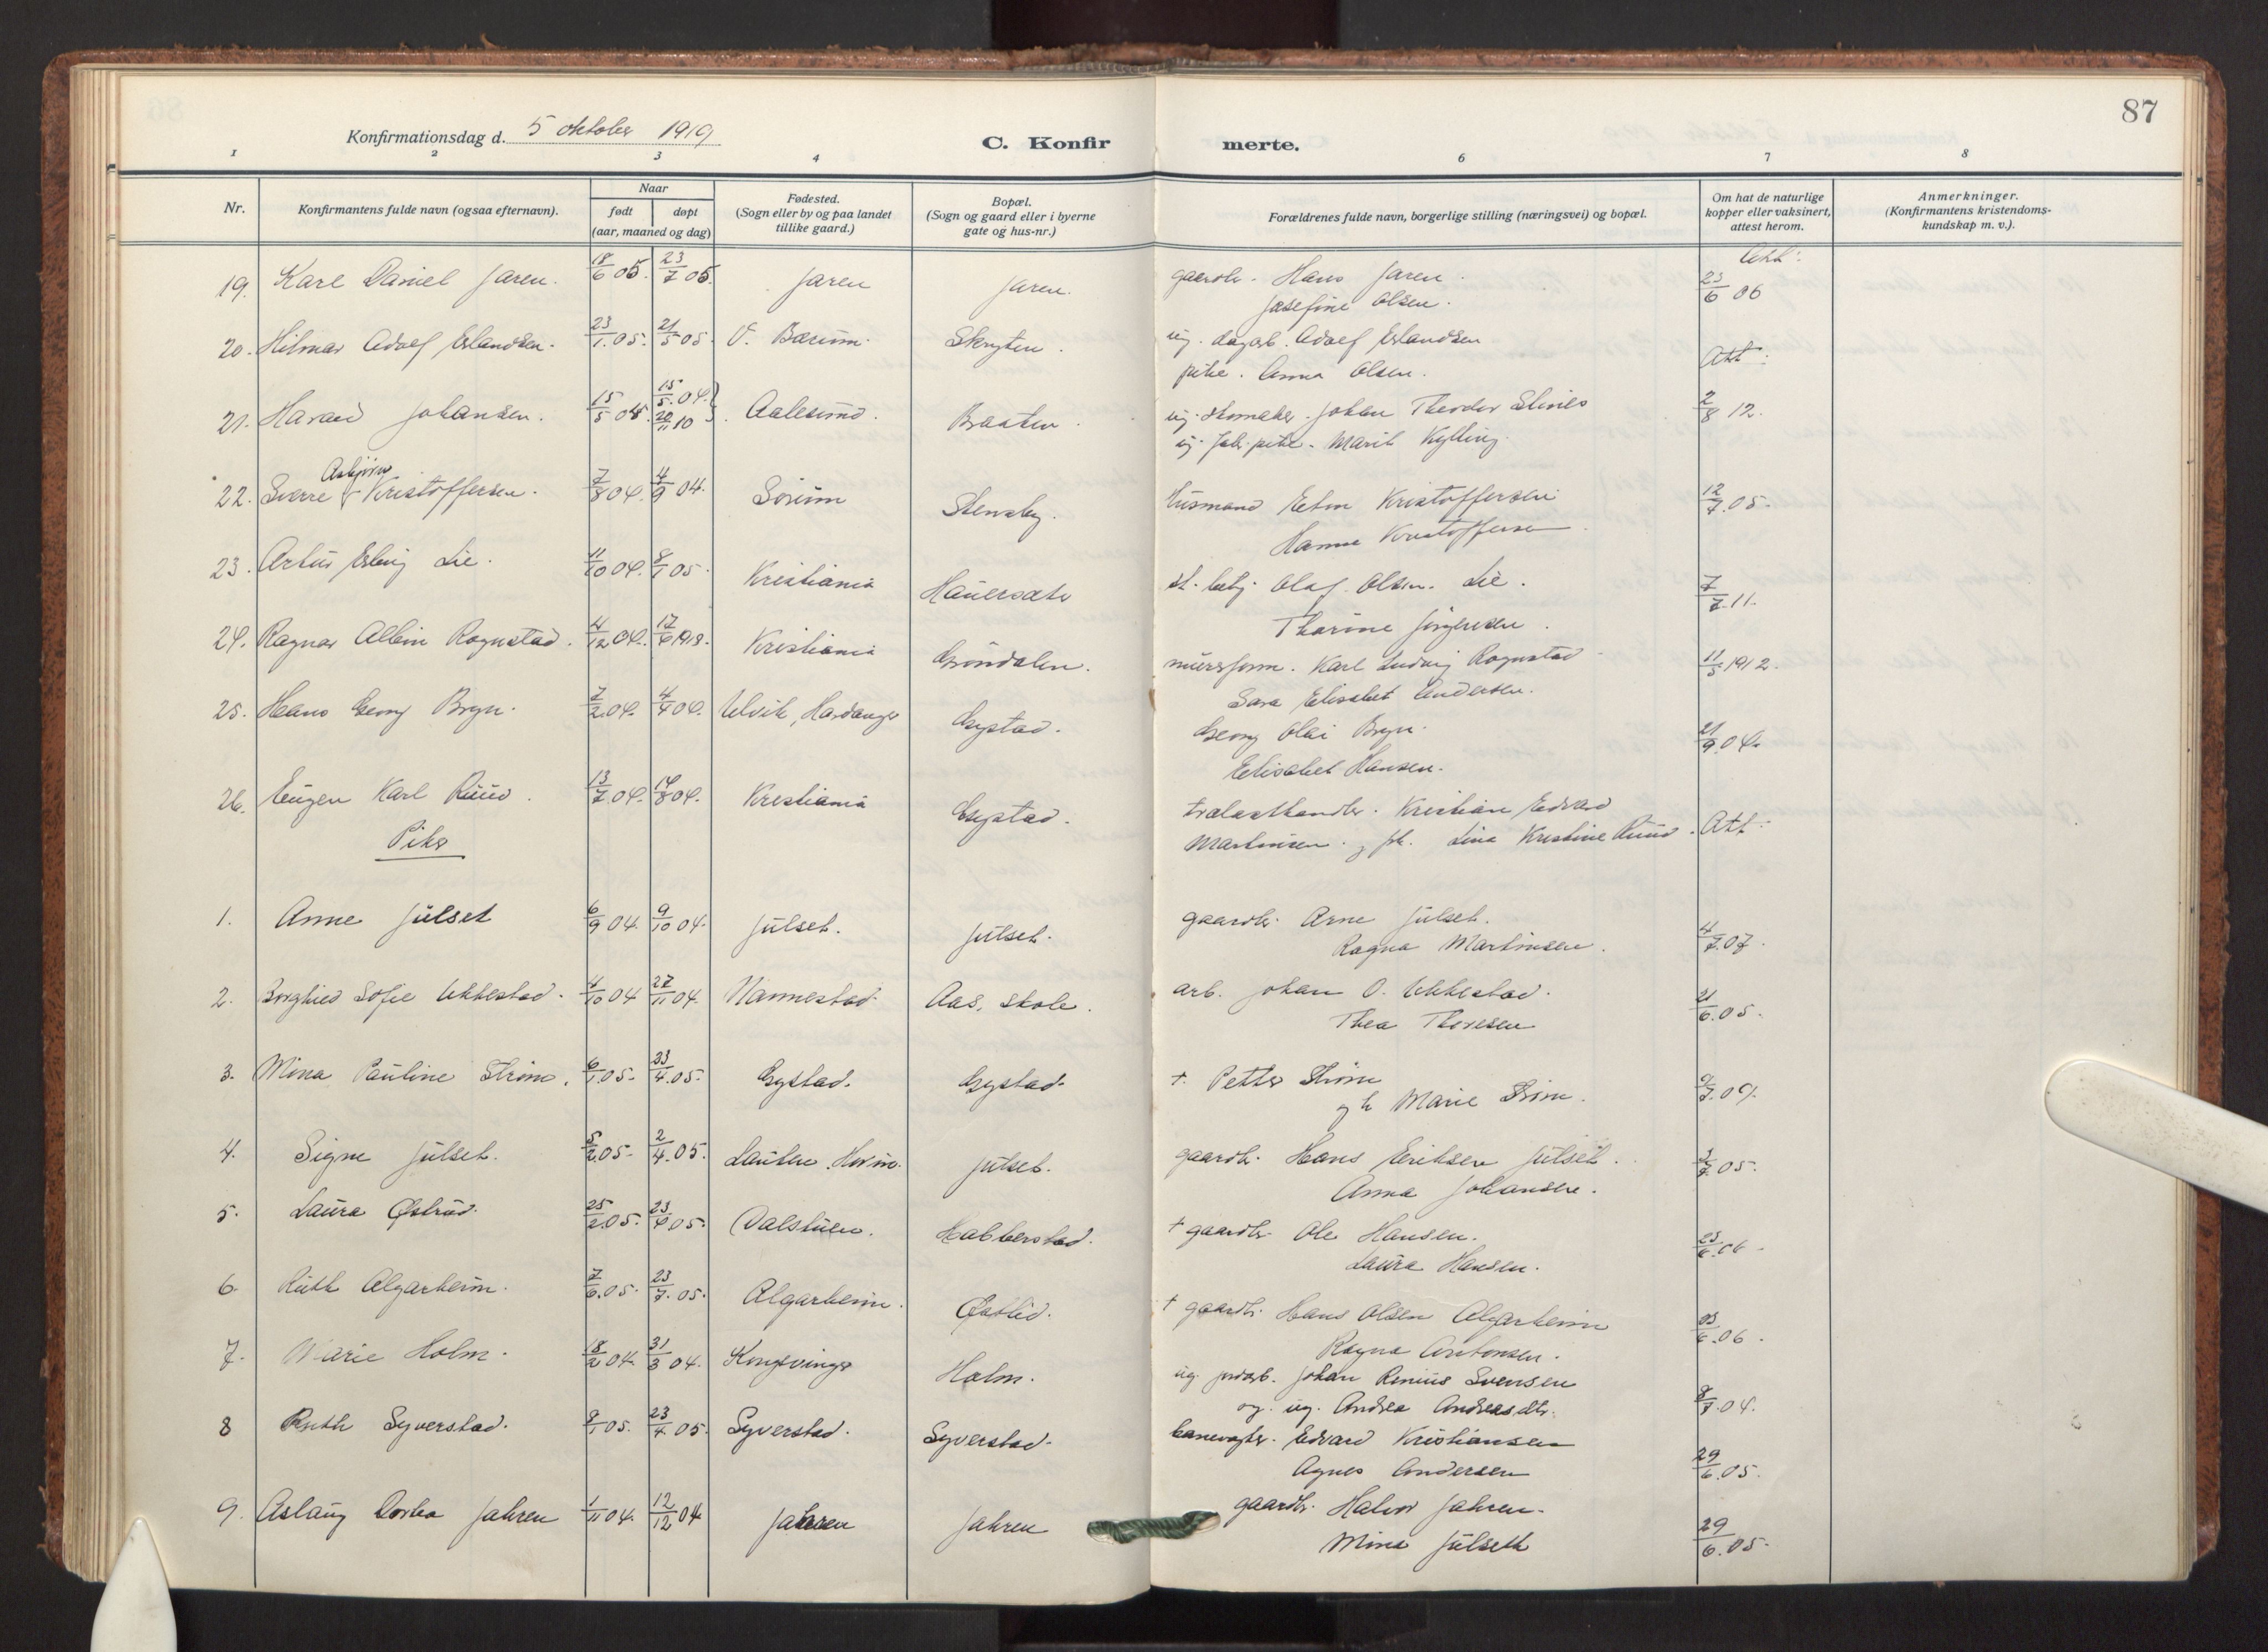 87
Konfirmationsdag d. 5 oktober 1919
C. Konfirmerte.
1 2 3 4 6 7 8
Nr.
Konfirmantens fulde navn (ogsaa efternavn).
Naar
født døpt
(aar, maaned og dag)
Fødested.
(Sogn eller by og paa landet
tillike gaard.)
Bopæl.
(Sogn og gaard eller i byerne
gate og hus-nr.)
Forældrenes fulde navn, borgerlige stilling (næringsvei) og bopæl.
Om hat de naturlige
kopper eller vaksinert,
attest herom.
Anmerkninger.
(Konfirmantens kristendoms-
kundskap m. v.).
19. Karl Daniel Jaren. 18/6 05. 23/7 05. Jaren Jaren. gaardbr. Hans Jaren. Att: 23/6 06
Josefine Olsen.
20. Hilmar Adolf Erlandsen. 23/1.05. 21/5 05. V. Bærum. Skryten. ug. dagarb. Adolf Erlandsen
pike. Anna Olsen. Att:
21. Harald Johansen. 15/5 04. 15/5.04. 20/11 10 Aalesund. Braaten. ug. skomaker. Johan Theodor Slines 2/8 12.
ug. fabr. pike. Marit Kylling.
22. Sverre Asbjørn Kristoffersen. 7/8 04. 4/9 04. Sørum Stensby. Husmand Eston Kristoffersen 12/7.05.
Hanna Kristoffersen.
23. Artur Erling Lie. 11/10 04. 8/1 05. Kristiania Hauersæter st. betj. Olaf Olsen Lie. 7/7.11.
Thorine Jørgensen.
24. Ragnar Albin Rognstad. 4/12 04. 17/6 1913. Kristiania Grøndalen. mursform. Karl Ludvig Rognstad 11/5 1912.
Sara Elisabet Andersen.
25. Hans Georg Bryn. 7/2.04. 4/4 04. Ulvik, Hardanger Gystad. Georg Olai Bryn. 21/9.04.
Elisabet Hansen.
26. Eugen Karl Ruud. 13/7.04. 14/8 04. Kristiania Gystad. trælasthandler. Kristian Edvard
Martinsen. g pk. Lina Kristine Ruud. Att:
Piker
1. Anne Julset 6/9 04. 9/10 04. Julset. Julset. gaardbr. Arne Julset. 4/7.07.
Ragna Martinsen.
2. Borghild Sofie Ukkestad. 4/10 04 27/11 04. Nannestad. Aas, skole. arb. Johan O. Ukkestad. 21/6.05.
Thea Thoresen
3. Mina Pauline Strøm. 6/1.05. 23/4.05. Gystad. Gystad. †. Petter Strøm
g h Marie Strøm.
4. Signe Julset. 5/2.05. 2/4.05. Lauten. Julset. gaardbr. Hans Eriksen Julset.
Anna Johansen.
5. Laura Østrud. 25/2.05. 23/4 05. Dalstuen. Habberstad. † gaardbr. Ole Hansen. 23/6.06.
Laura Hansen.
6. Ruth Algarheim. 7/6.05. 23/7.05. Algarheim. Østlid. † gaardbr. Hans Olsen Algarheim
Ragna Antonsen.
7. Marie Holm. 18/2 04. 31/3 04. Kongsvinger Holm. ug. jordarb. Johan Renius Svensen
og ug. Andrea Andreasdtr. 8/7.04.
8 Ruth Syverstad. 9/1 05. 23/4 05. Syverstad. Syverstad. banevogter. Edvard Kristiansen
Agnes Andersen 29/6.05.
9. Aslaug Dorthea Jahren 1/11 04. 12/12 04 Jahren Jahren gaardbr. Halvor Jahren.
Mina Julseth 29/6.05.